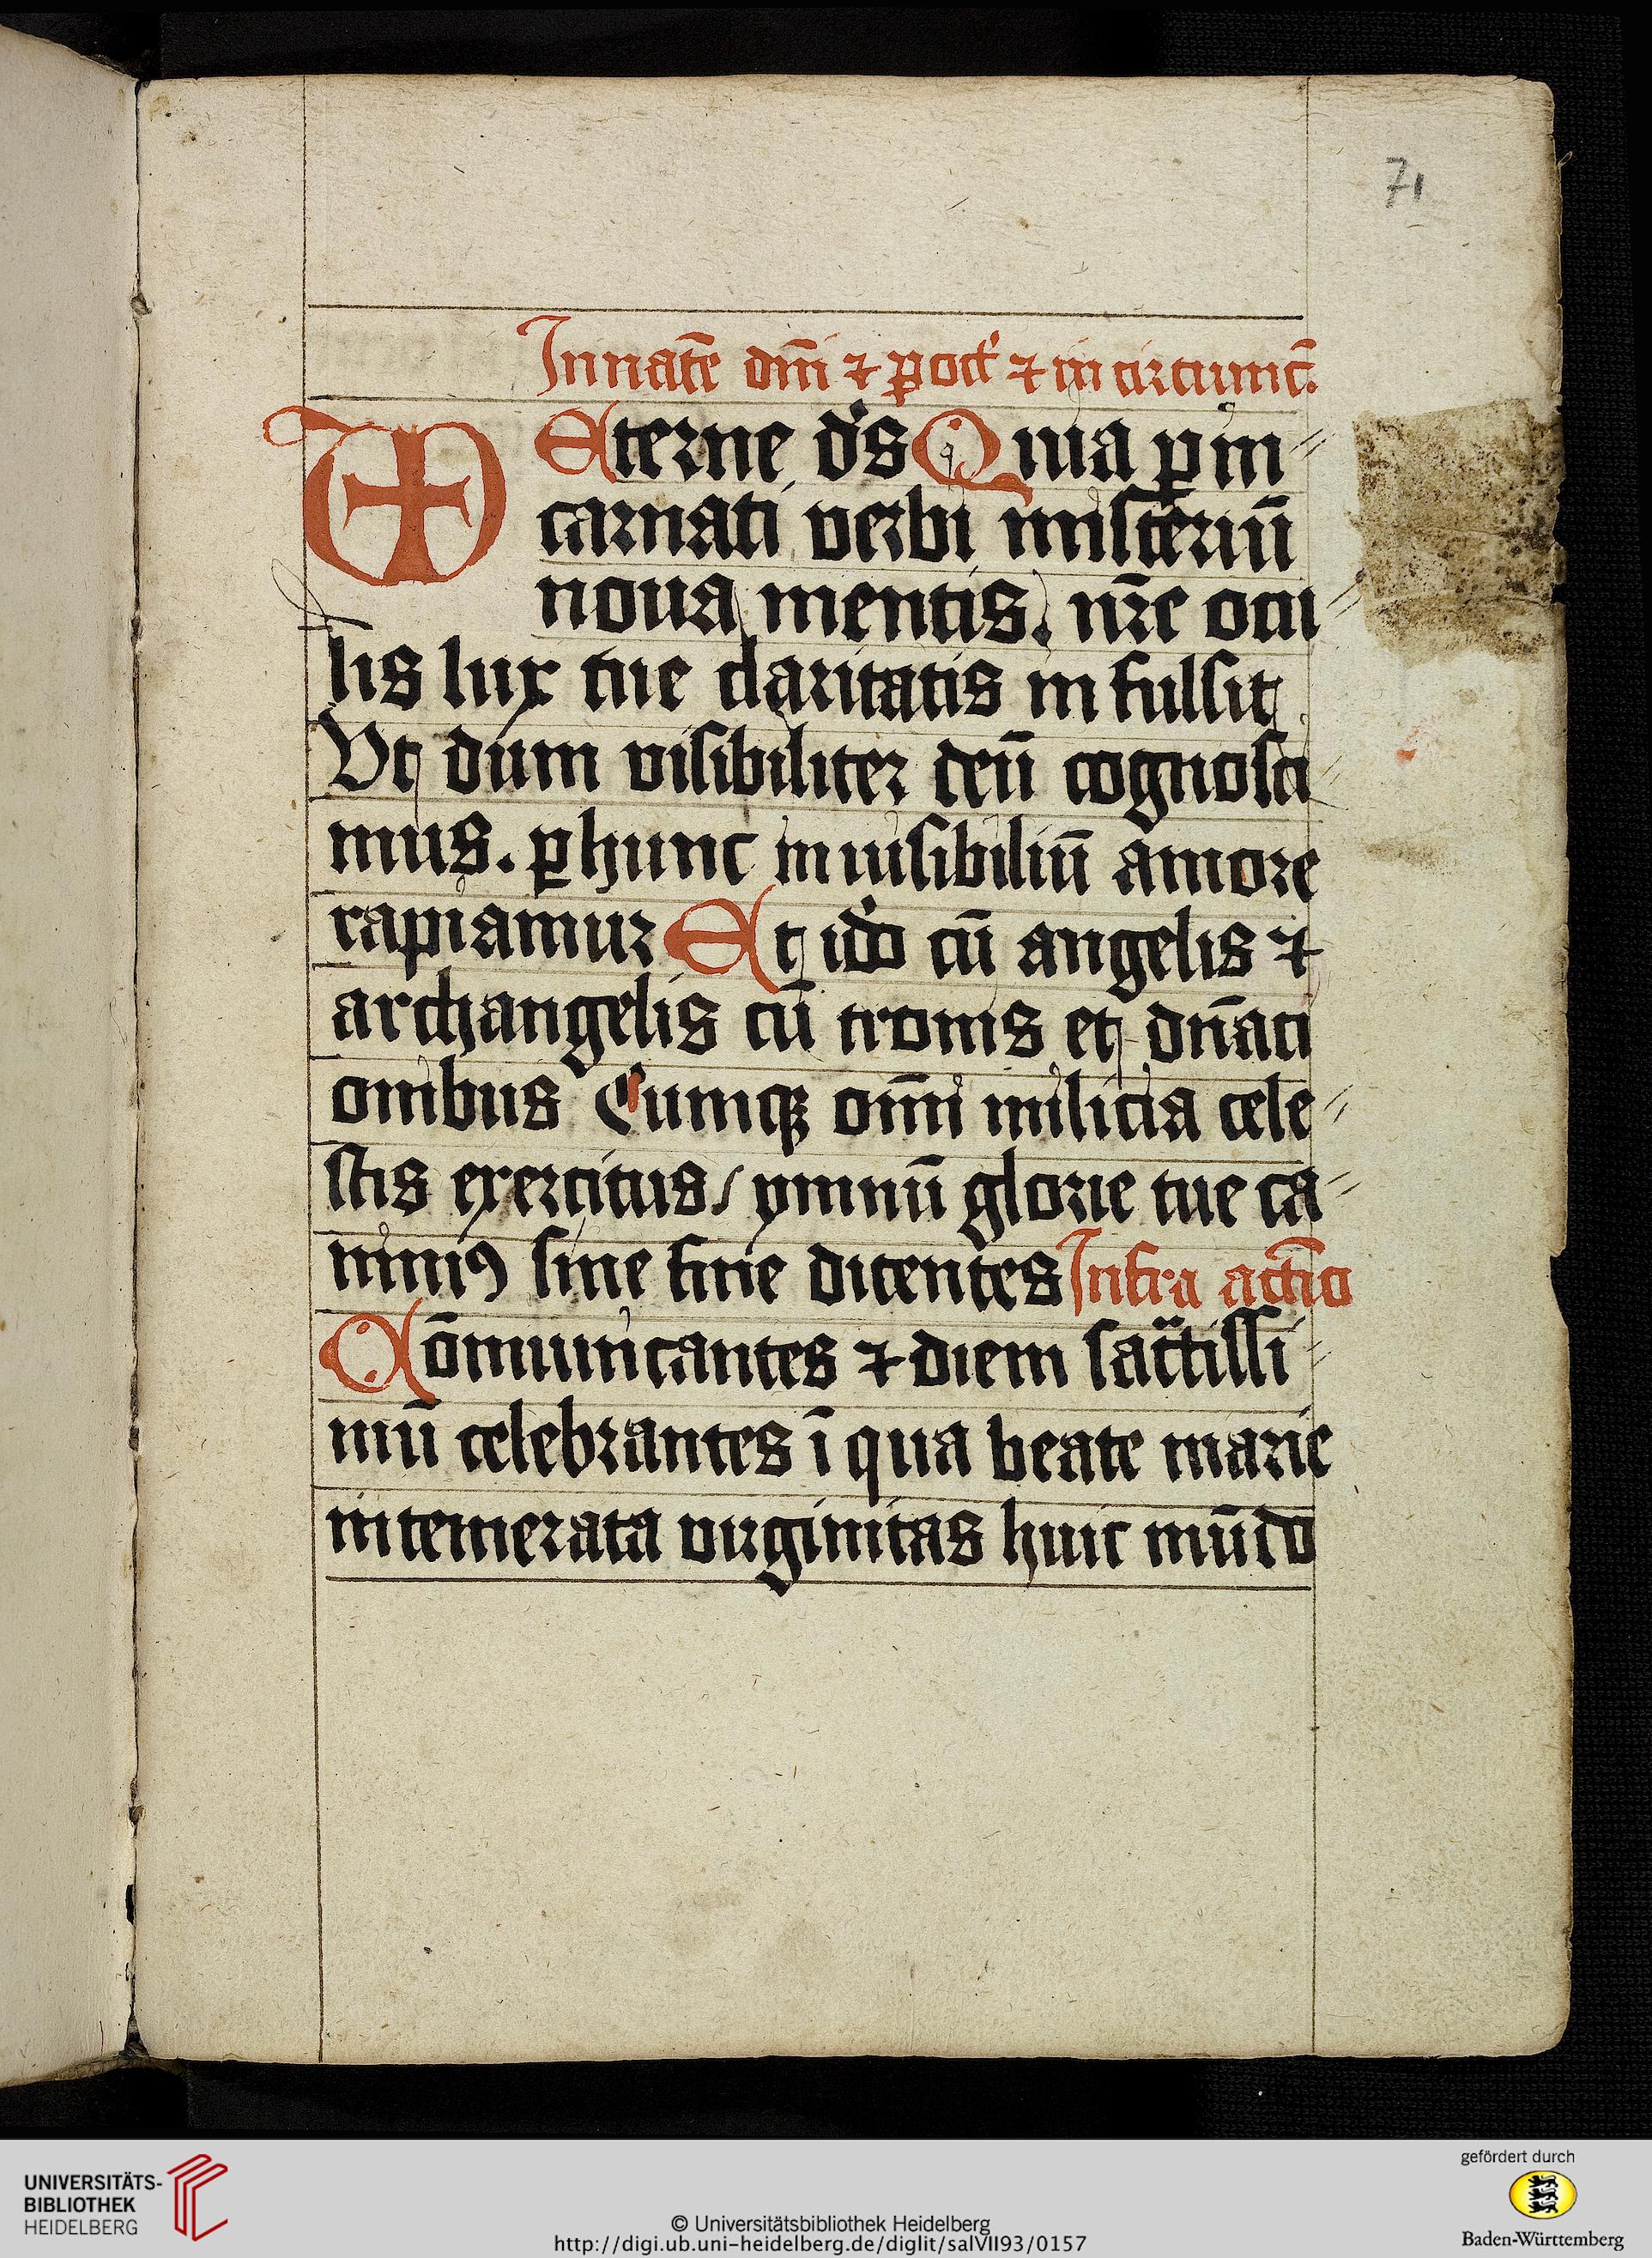 71
In natẽ dñi ⁊ ꝑ oct' ⁊ in circumc̄.
Eterne d's Quia ꝑ in⸗
carnati verbi misteriū
noua mentis. nr̄e ocu⸗
lis lux tue claritatis in fulsit
Vt dum visibiliter deū cognosci⸗
mus. ꝑ hunc in iusibiliū amore
rapiamur Et id'o cū angelis ⁊
archangelis cū tronis et dn̄aci
onibus Cumqꝫ om̄i milicia cele⸗
stis exercitus / ymnū glorie tue ca⸗
nimꝰ sine fine dicentes Infra actio
Cōmunicantes ⁊ diem sāctissi⸗
mū celebrantes ī qua beate marie
intemerata virginitas huic mūdo
UNIVERSITÄTS-
BIBLIOTHEK
HEIDELBERG
© Universitätsbibliothek Heidelberg
http://digi.ub.uni-heidelberg.de/diglit/salVII93/0157
gefördert durch
Baden-Württemberg